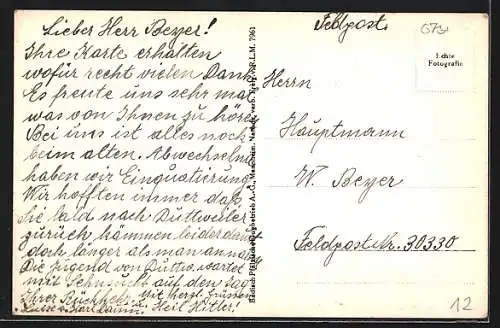 Lieber Herr Beyer!
Ihre Karte erhalten
wofür recht vielen Dank
Es freute uns sehr mal
was von Ihnen zu hören
Bei uns ist alles noch
beim alten. Abwechselnd
haben wir Einquatierung
Wir hofften immer daß
Sie bald nach Duttweiler
zurück kämmen leider dau
doch länger als man annahm
Die Jugend von Duttw. wartet
mit Sehnsucht auf den Tag
Ihrer Rückkehr. Mit herzl. Grüssen
Heil Hitler!
Feldpost
Echte
Fotografie
Herrn
Hauptmann
W. Beyer
Feldpostnr. 30330
12